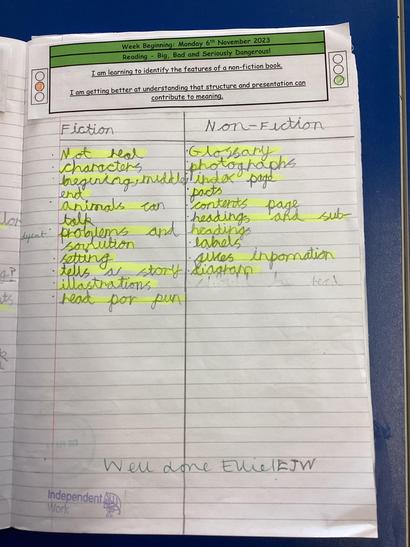 Week Beginning: Monday 6th November 2023
Reading - Big, Bad and Seriously Dangerous!
I am learning to identify the features of a non-fiction book.
I am getting better at understanding that structure and presentation can
contribute to meaning.
Fiction
· Not real
· characters
· begining, middle,
end
· animals can
talk
· problems and
soulution
· setting
· tells a story
· illustrations
· read for fun
Non-Fiction
· Glossary
· photographs
· index page
· facts
· contents page
· headings and sub-
headings
· labels
· gives information
· diagram
Well done Ellie! EJW
Independent
Work